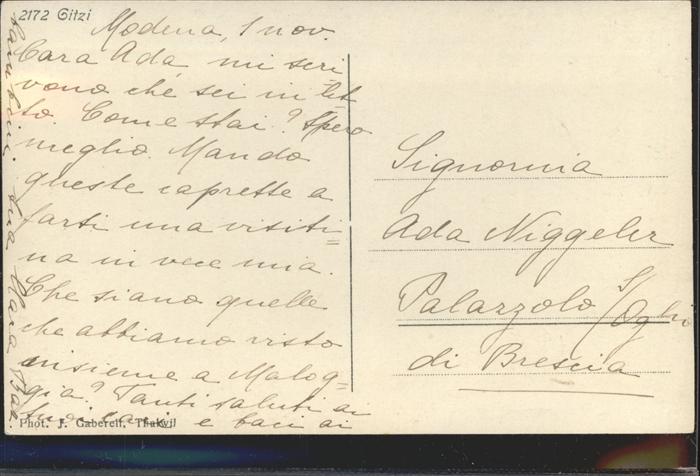 2172 Gitzi
Modena, 1 nov.
Cara Ada mi scri
vono che sei in let-
to. Come stai? Spero
meglio. Mando
queste caprette a
farti una visiti=
na in vece mia.
Che siano quelle
che abbiamo visto
insieme a Malog=
gia? Tanti saluti ai
tuoi cari e baci ai
tua
Signorina
Ada Niggeler
Palazzolo s/Oglio
di Brescia
Phot. J. Gaberell, Thalwil